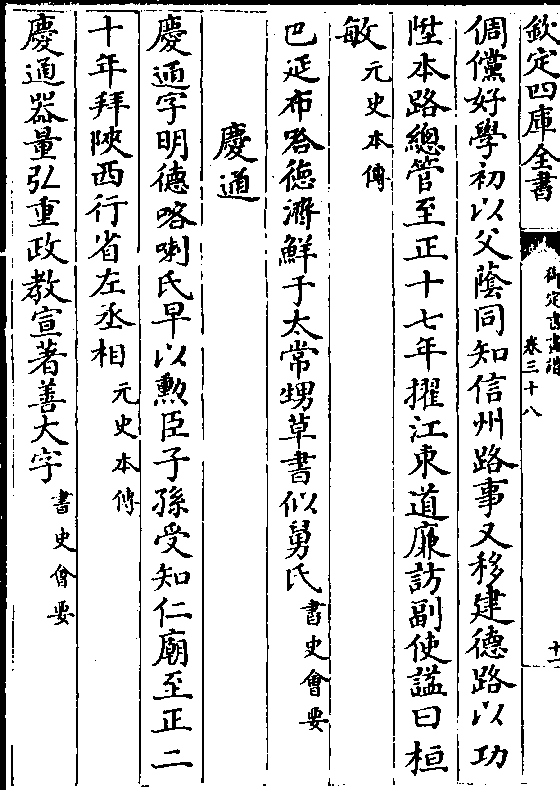 欽定四庫全書
御定書畫譜
卷三十八
十一
倜儻好學初以父蔭同知信州路事又移建德路以功
陞本路總管至正十七年擢江東道廉訪副使諡曰桓
敏元史本傳
巴延布哈德濟鮮于太常甥草書似舅氏書史會要
慶通
慶通字明德喀喇氏早以勲臣子孫受知仁廟至正二
十年拜陝西行省左丞相元史本傳
慶通器量弘重政教宣著善大字書史會要